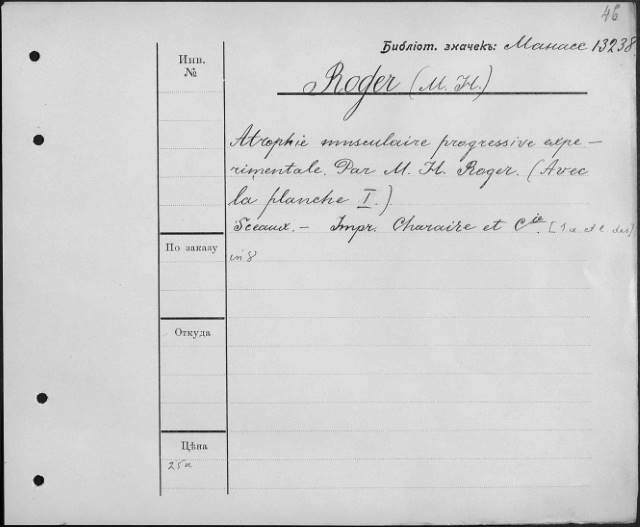 46
Библіот. значекъ: Манасс 13238
Инв.
№
Roger (M. H.)
Atrophie musculaire progressive expe-
rimentale. Par M. H. Roger. (Avec
la planche I.)
Sceaux. — Impr. Charaire et Cie.
По заказу
in 8
Откуда
Цѣна
25к